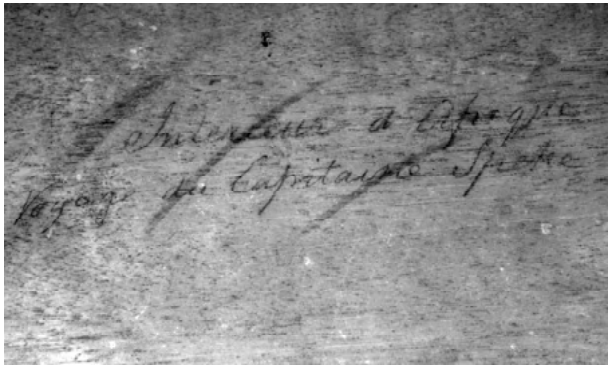 Interieur d Afrique
Voyage du Capitaine Speke